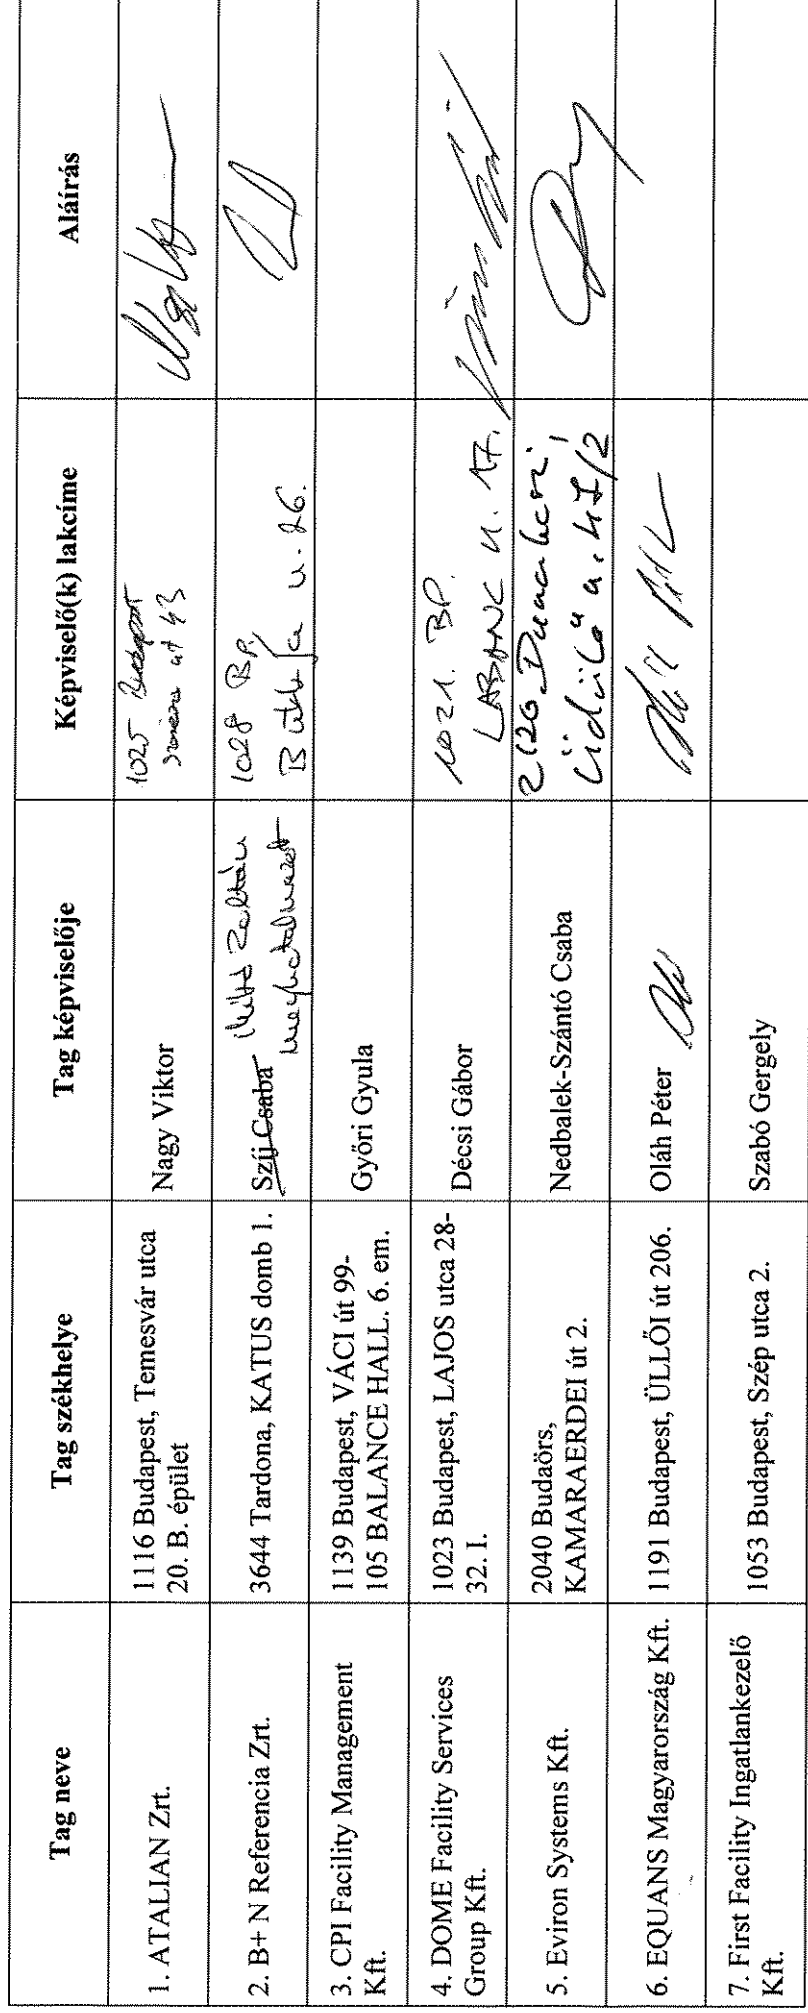 Tag neve
Tag székhelye
Tag képviselője
Képviselő(k) lakcíme
Aláírás
1. ATALIAN Zrt.
1116 Budapest, Temesvár utca
20. B. épület
Nagy Viktor
1025 Budapest
út 43
2. B+ N Referencia Zrt.
3644 Tardona, KATUS domb 1.
Szíj Csaba
Zoltán
meghatalmazott
1028 BP.
u. 26.
3. CPI Facility Management
Kft.
1139 Budapest, VÁCI út 99-
105 BALANCE HALL. 6. em.
Győri Gyula
4. DOME Facility Services
Group Kft.
1023 Budapest, LAJOS utca 28-
32. I.
Décsi Gábor
1021. BP.
LABANC U. 17.
5. Eviron Systems Kft.
2040 Budaörs,
KAMARAERDEI út 2.
Nedbalek-Szántó Csaba
2120 Dunakeszi,
Üdülő u. 47/2
6. EQUANS Magyarország Kft.
1191 Budapest, ÜLLŐI út 206.
Oláh Péter
7. First Facility Ingatlankezelő
Kft.
1053 Budapest, Szép utca 2.
Szabó Gergely